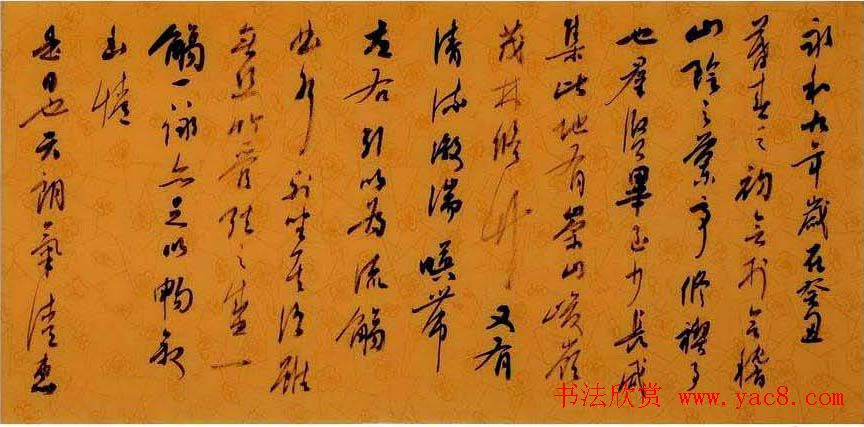 永和九年歲在癸丑
暮春之初會於會稽
山陰之蘭亭修禊事
也群賢畢至少長咸
集此地有崇山峻嶺
茂林修竹又有
清流激湍暎帶
左右引以為流觴
曲水列坐其次雖
無絲竹管弦之盛一
觴一詠亦足以暢敘
幽情
是日也天朗氣清惠
书法欣赏 www.yac8.com